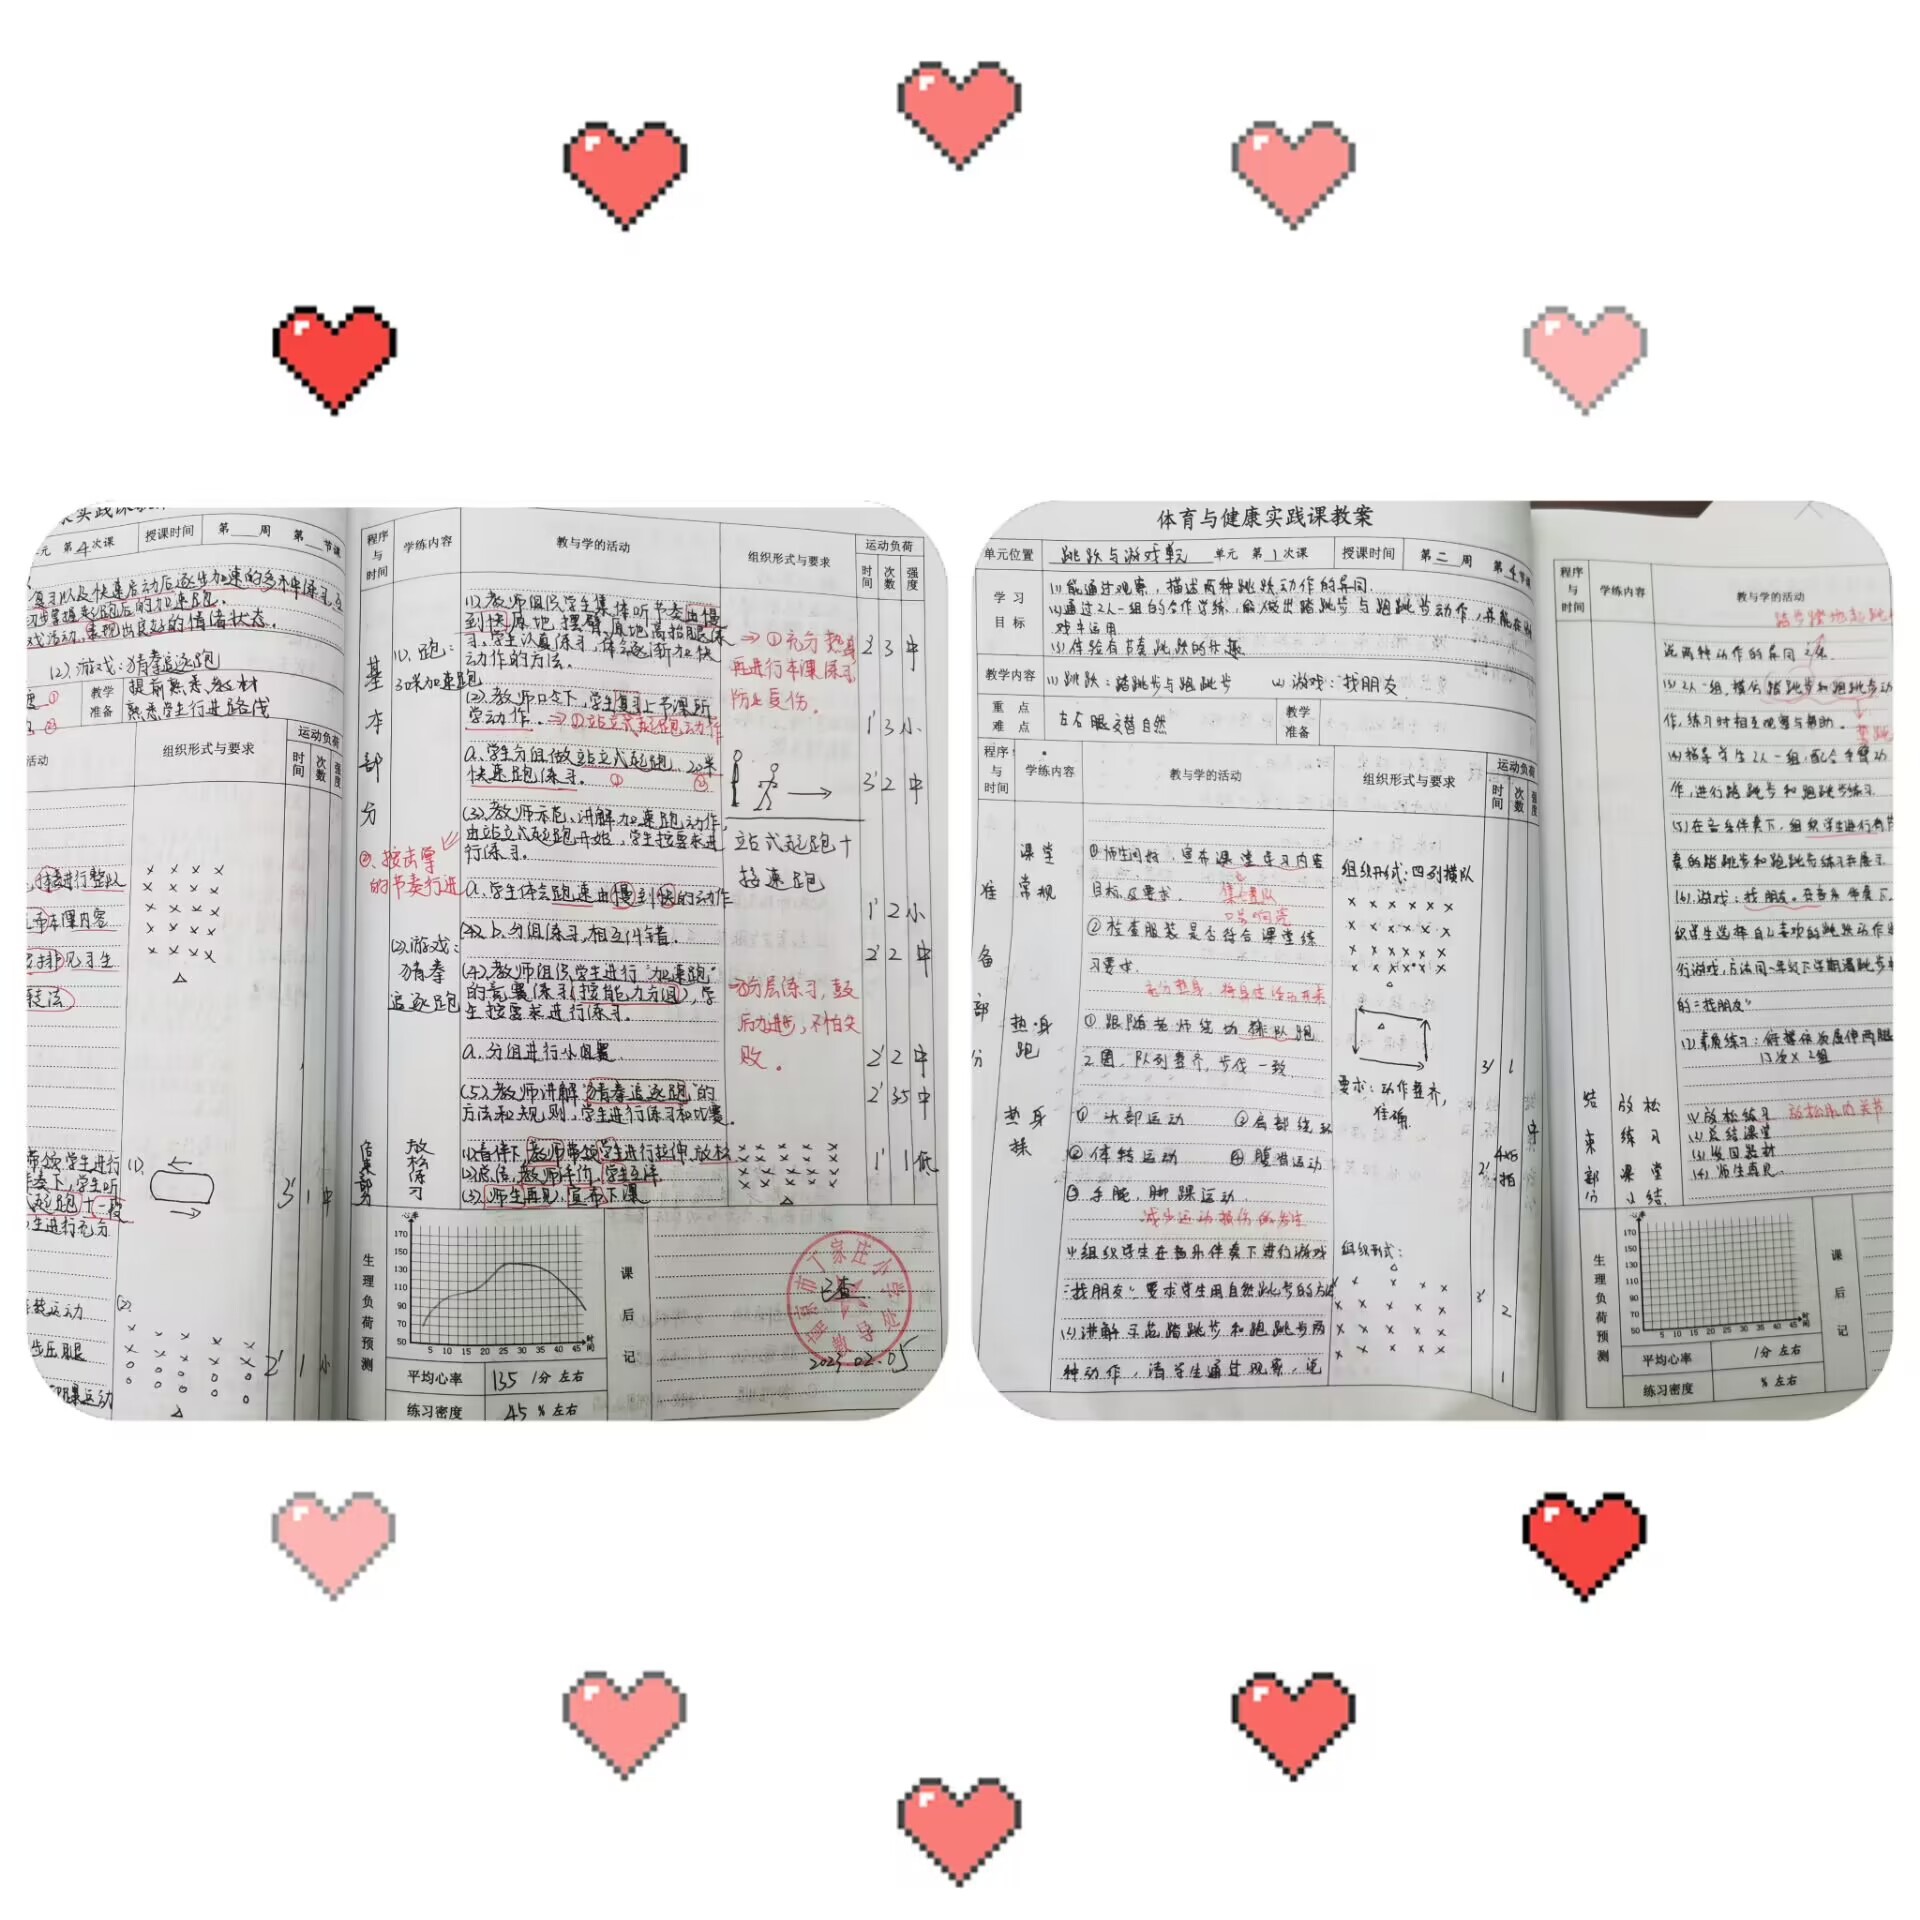 实践课教案
单元 第4次课 授课时间 第 周 第 节课
复习以及快速启动后逐步加速的多种练习
初步掌握起跑后的加速跑。
戏活动，表现出良好的情绪状态。
(2).游戏：猜拳追逐跑
教学准备 提前熟悉教材
熟悉学生行进路线
活动 组织形式与要求 运动负荷
时间 次数 强度
进行整队
本课内容
见习生
带领学生进行
奏下，学生听
生进行充分
3' 1 中
步压腿
2' 1 小
程序与时间 学练内容 教与学的活动 组织形式与要求 运动负荷
时间 次数 强度
基本部分
(1).跑：
30米加速跑
(1).教师组织学生集体听节奏由慢
到快原地摆臂、原地高抬腿练
习，学生认真练习，体会逐渐加快
动作的方法。
⇒①充分热身
再进行本课练习
防止受伤。
2' 3 中
(2).教师口令下，学生复习上节课所
学动作。⇒①站立式起跑动作
1' 3 小
a.学生分组做站立式起跑，20米
快速跑练习。
3' 2 中
(3).教师示范、讲解加速跑动作，
由站立式起跑开始，学生按要求进
行练习。
站式起跑+
接速跑
②.按击掌
的节奏行进
a.学生体会跑速由慢到快的动作
1' 2 小
b.分组练习，相互纠错。
2' 2 中
(2).游戏：
猜拳
追逐跑
(4).教师组织学生进行"加速跑"
的竞赛练习(按能力分组)，学
生按要求进行练习。
分层练习，鼓
后力进步，不怕失
败。
a.分组进行小组赛
2' 2 中
(5).教师讲解"猜拳追逐跑"的
方法和规则，学生进行练习和比赛。
2' 35 中
结束部分
放松练习
(1).音伴下，教师带领学生进行拉伸、放松
(2).总结，教师评价，学生互评
(3).师生再见，宣布下课
1' 1 低
生理负荷预测
心率
170
150
130
110
90
70
50
5 10 15 20 25 30 35 40 45 时间
平均心率 135 /分 左右
练习密度 45 % 左右
课后记
丁家庄小学
已查
2023.02.05
体育与健康实践课教案
单元位置 跳跃与游戏单元 单元 第1次课 授课时间 第二周 第4节课
学习目标
(1)能通过观察，描述两种跳跃动作的异同.
(2)通过2人一组的合作学练，能做出踏跳步与跑跳步动作，并能在游
戏中运用
(3)体验有节奏跳跃的乐趣
教学内容 (1)跳跃：踏跳步与跑跳步 (2)游戏：找朋友
重点难点 左右腿交替自然 教学准备
程序与时间 学练内容 教与学的活动 组织形式与要求 运动负荷
时间 次数 强度
准备部分
课堂常规
①师生问好，宣布课堂学习内容
目标及要求.
集合整队
口号响亮
②检查服装是否符合课堂练
习要求.
组织形式：四列横队
充分热身，将身体活动开来
热身跑
①跟随老师绕场排队跑
2圈，队列整齐，步伐一致.
3' 1
要求：动作整齐，
准确.
热身操
①头部运动 ②肩部绕环
③体转运动 ④腹背运动
⑤手腕，脚踝运动.
2' 4×8拍
减少运动损伤的发生
(1)组织学生在音乐伴奏下进行游戏
"找朋友"，要求学生用自然跳步的方法
组织形式：
3' 2
(2)讲解示范踏跳步和跑跳步两
种动作，请学生通过观察，说
1
程序与时间 学练内容 教与学的活动
说两种动作的异同之处.
(3)2人一组，模仿踏跳步和跑跳步动
作，练习时相互观察与帮助.
(4)指导学生2人一组，配合手臂动
作，进行踏跳步和跑跳步练习
(5)在音乐伴奏下，组织学生进行有节
奏的踏跳步和跑跳步练习并展示
(6).游戏：找朋友.在音乐伴奏下，
织学生选择自己喜欢的跳跃动作进
行游戏，方法同一年级下学期
的"找朋友"
(7)素质练习：
13次×2组
结束部分
放松练习
课堂小结.
(1)放松练习 放松肌肉关节
(2)总结课堂
(3)收回器材
(4)师生再见.
生理负荷预测
心率
170
150
130
110
90
70
50
5 10 15 20 25 30 35 40 45 时间
平均心率 /分 左右
练习密度 % 左右
课后记